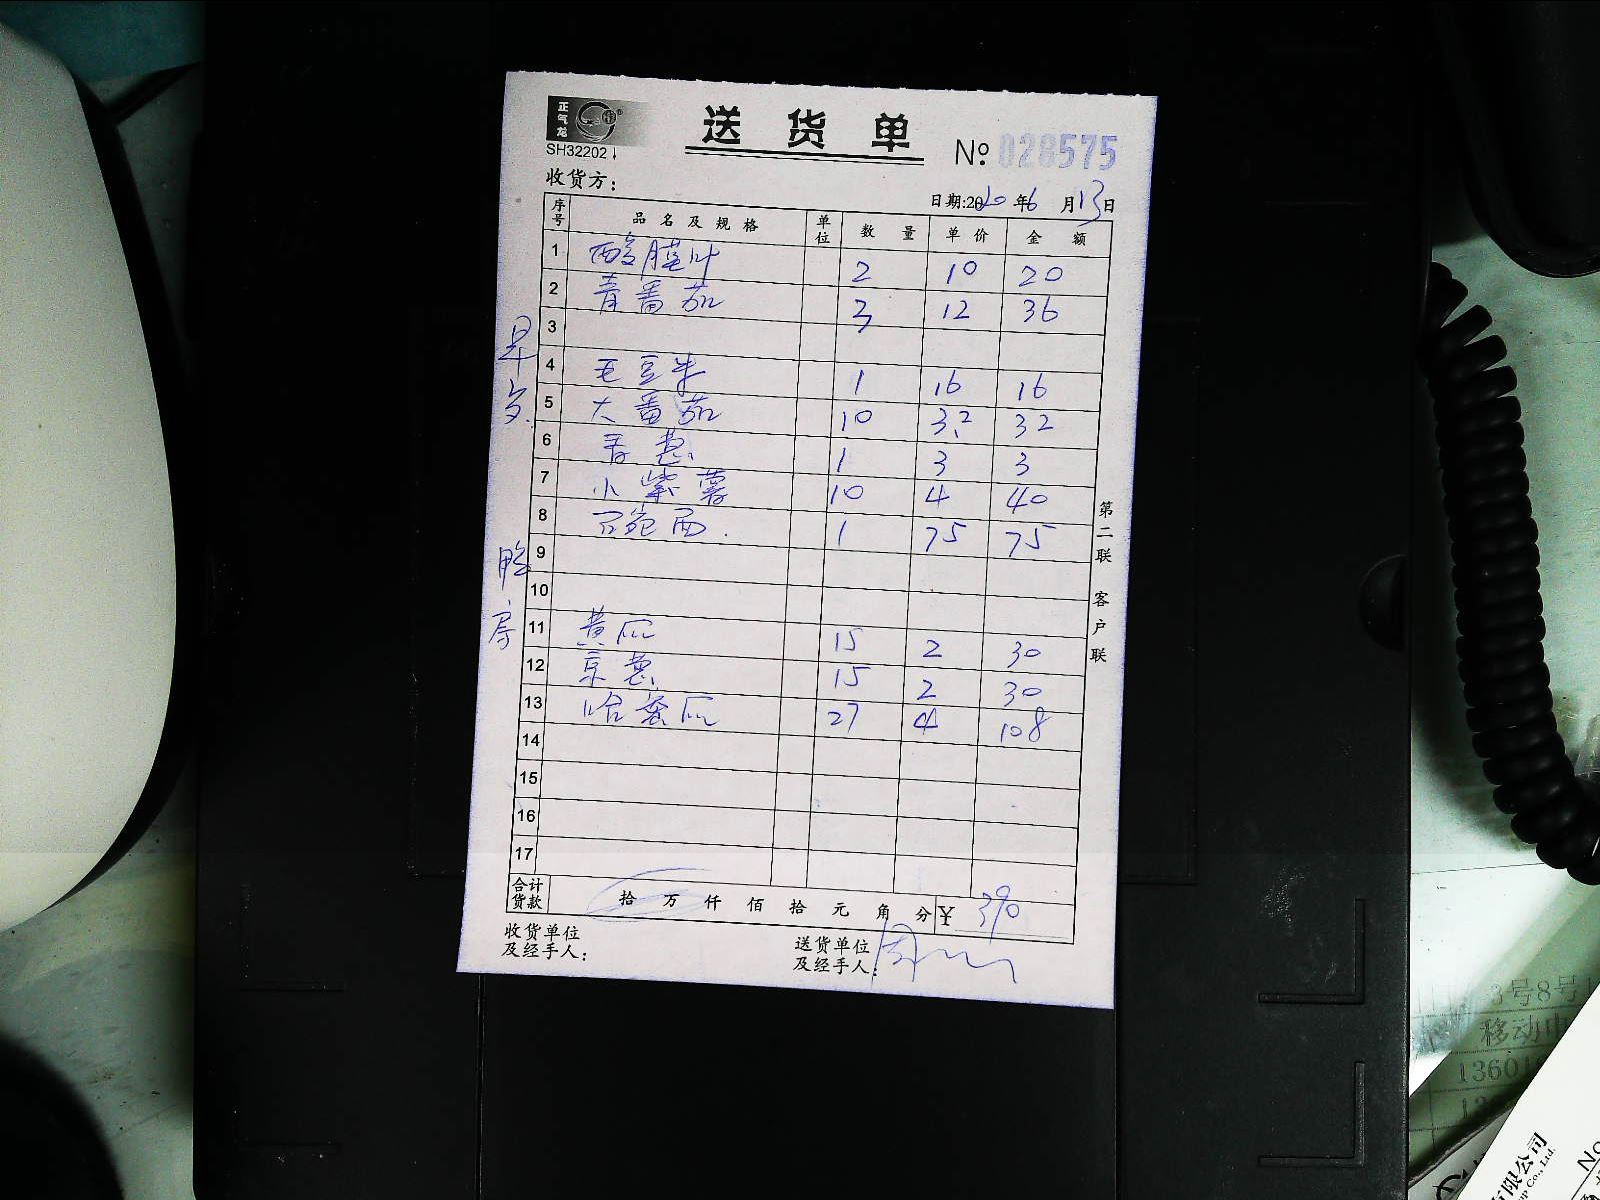 正气龙
SH32202
送货单
№: 028575
收货方:
日期:2020年6月13日
序号 品名及规格 单位 数量 单价 金额
1 酸膜叶 2 10 20
2 青番茄 3 12 36
3
4 毛豆米 1 16 16
5 大番茄 10 3.2 32
6 香葱 1 3 3
7 小紫薯 10 4 40
8 1 75 75
9
10
11 黄瓜 15 2 30
12 京葱 15 2 30
13 哈蜜瓜 27 4 108
14
15
16
17
合计货款 拾 万 仟 佰 拾 元 角 分 ¥ 390
收货单位及经手人:
送货单位及经手人:
第二联 客户联
鸭房
3号8号
移动电
1360
有限公司
Co., Ltd.
No